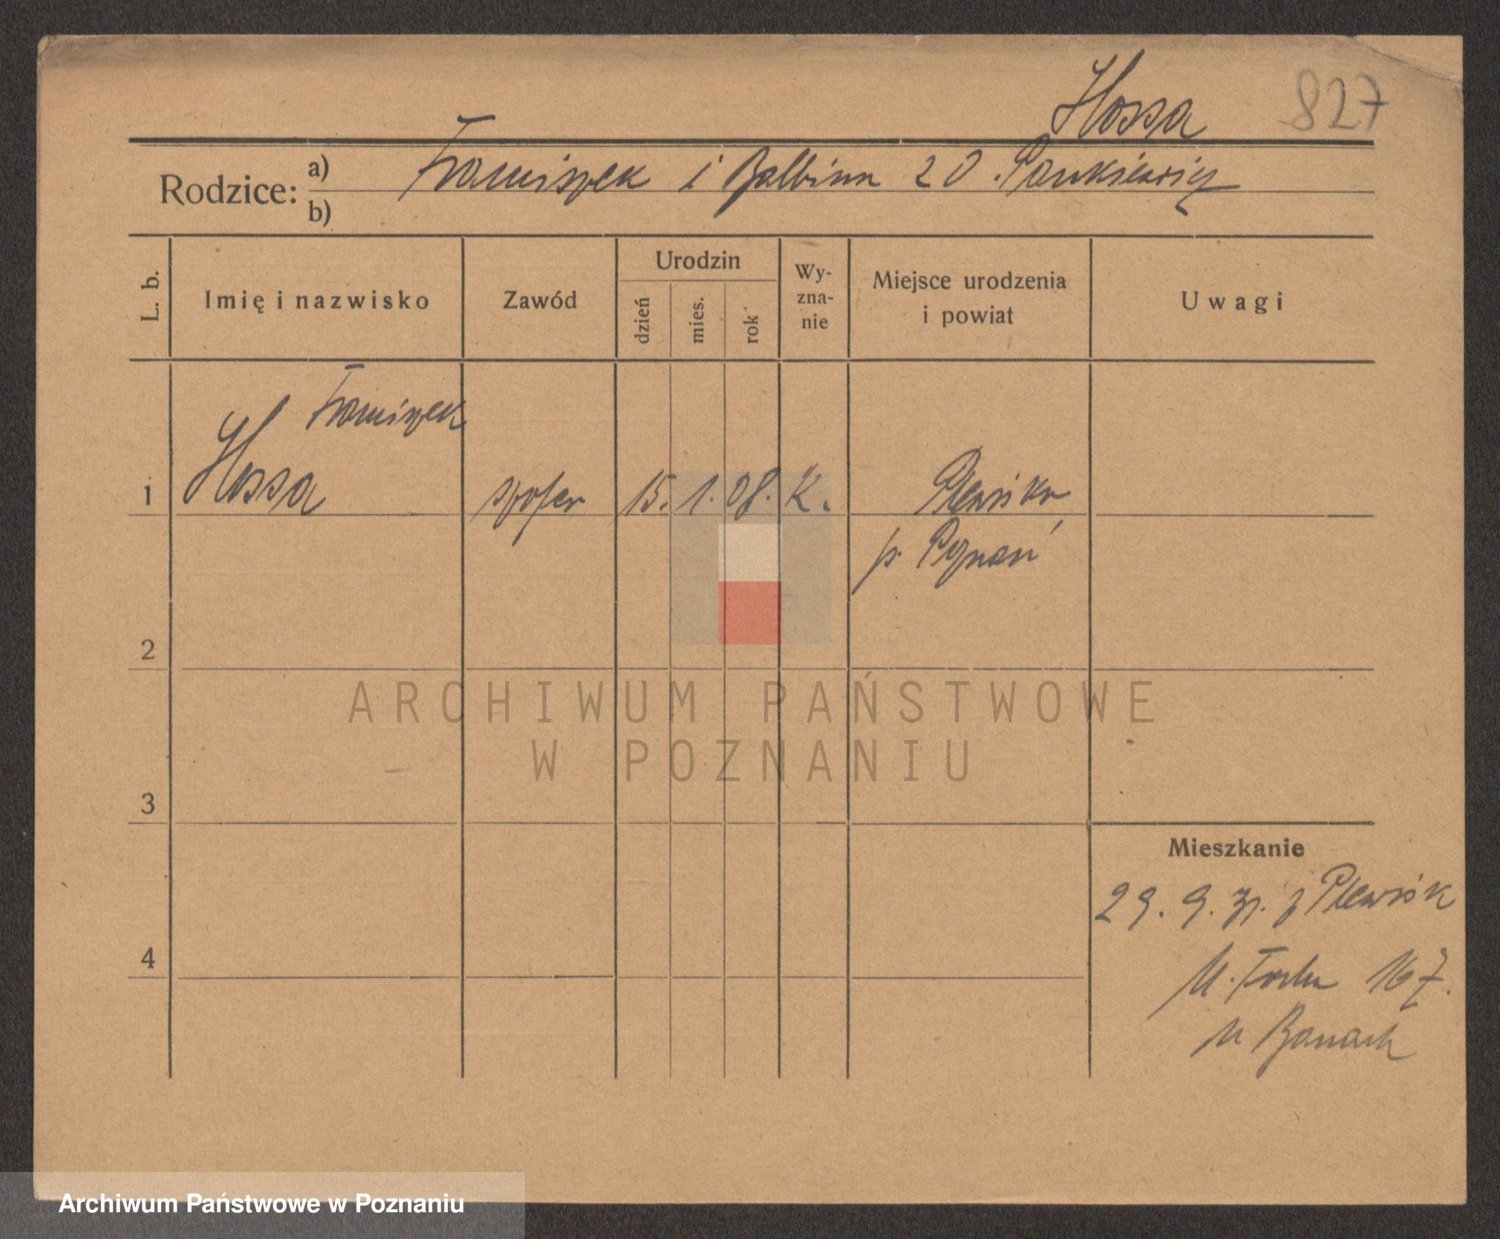 Hossa 827
Rodzice: a) Franciszek i Balbina z d. Pankiewicz
b)
L. b. Imię i nazwisko Zawód Urodzin dzień mies. rok Wyznanie Miejsce urodzenia i powiat Uwagi
Franciszek
1 Hossa szofer 15. 1. 08. K.
p. Poznań
2
ARCHIWUM PAŃSTWOWE
W POZNANIU
3
Mieszkanie
29. 9. 31. z Plewisk
4
167.
u Banach
Archiwum Państwowe w Poznaniu